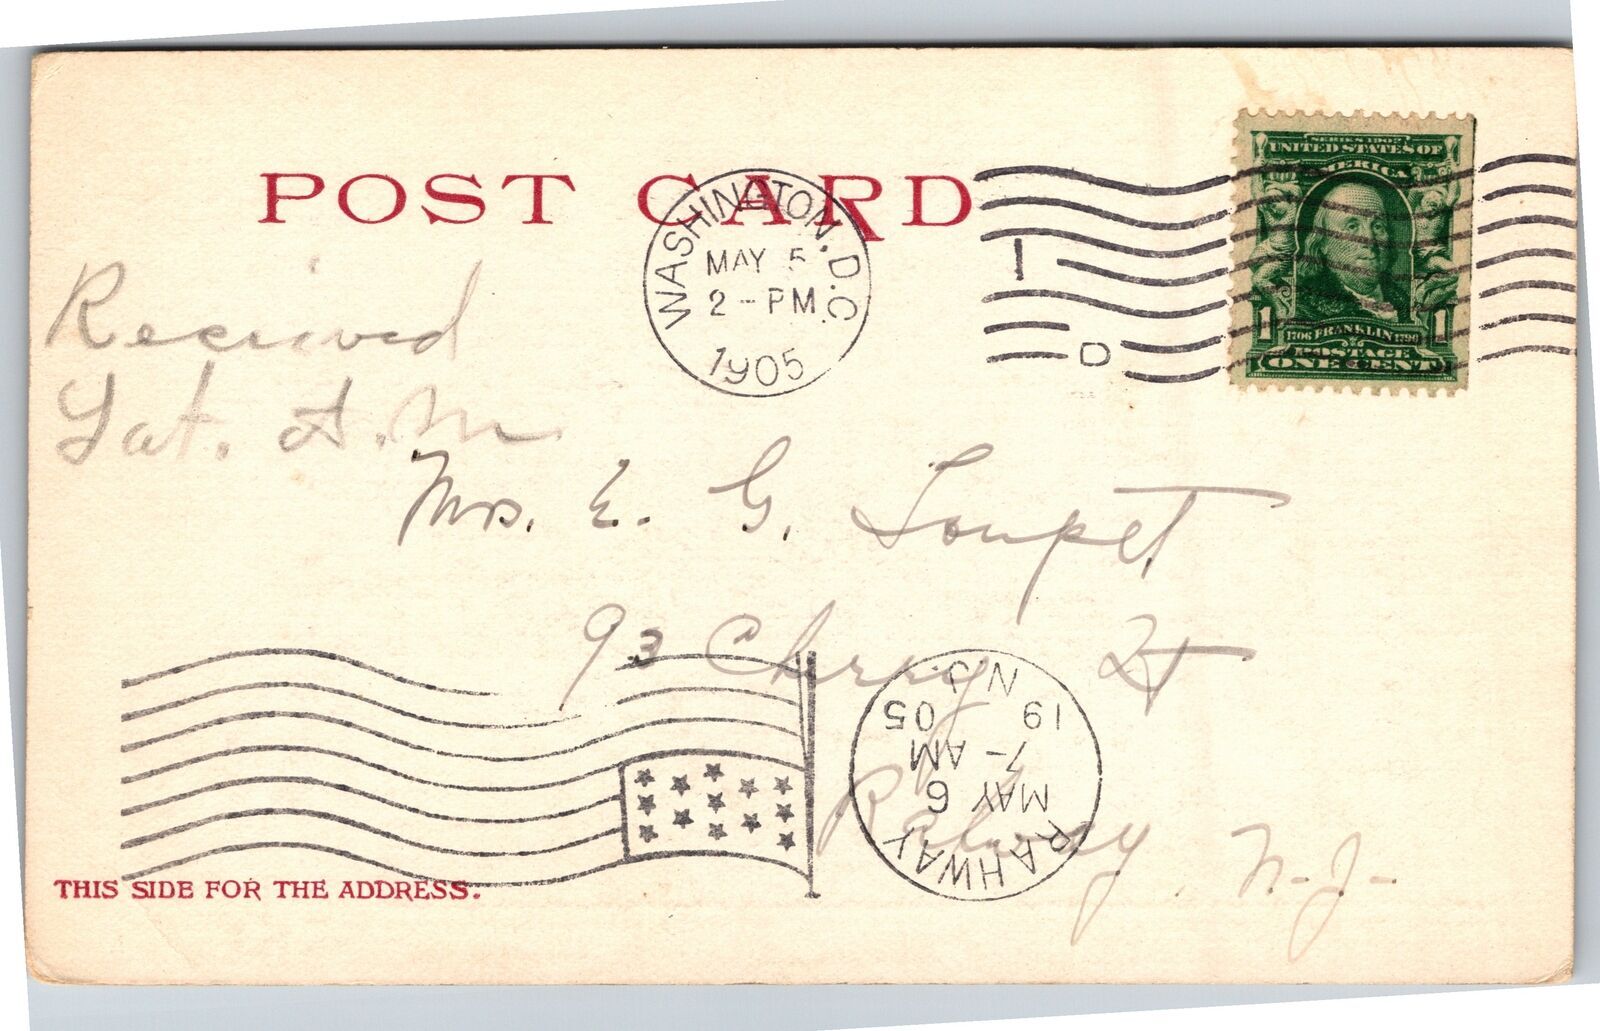 POST CARD
WASHINGTON, D.C.
MAY 5
2-PM
1905
1 D
SERIES 1902
UNITED STATES OF
AMERICA
1706 FRANKLIN 1790
1 1
POSTAGE
ONE CENT
Received
Sat. A.M
Mrs. E. G. Loupet
93 Cherry St
Rahway, N.J.
RAHWAY
MAY 6
7-AM
19 05
N.J.
THIS SIDE FOR THE ADDRESS.